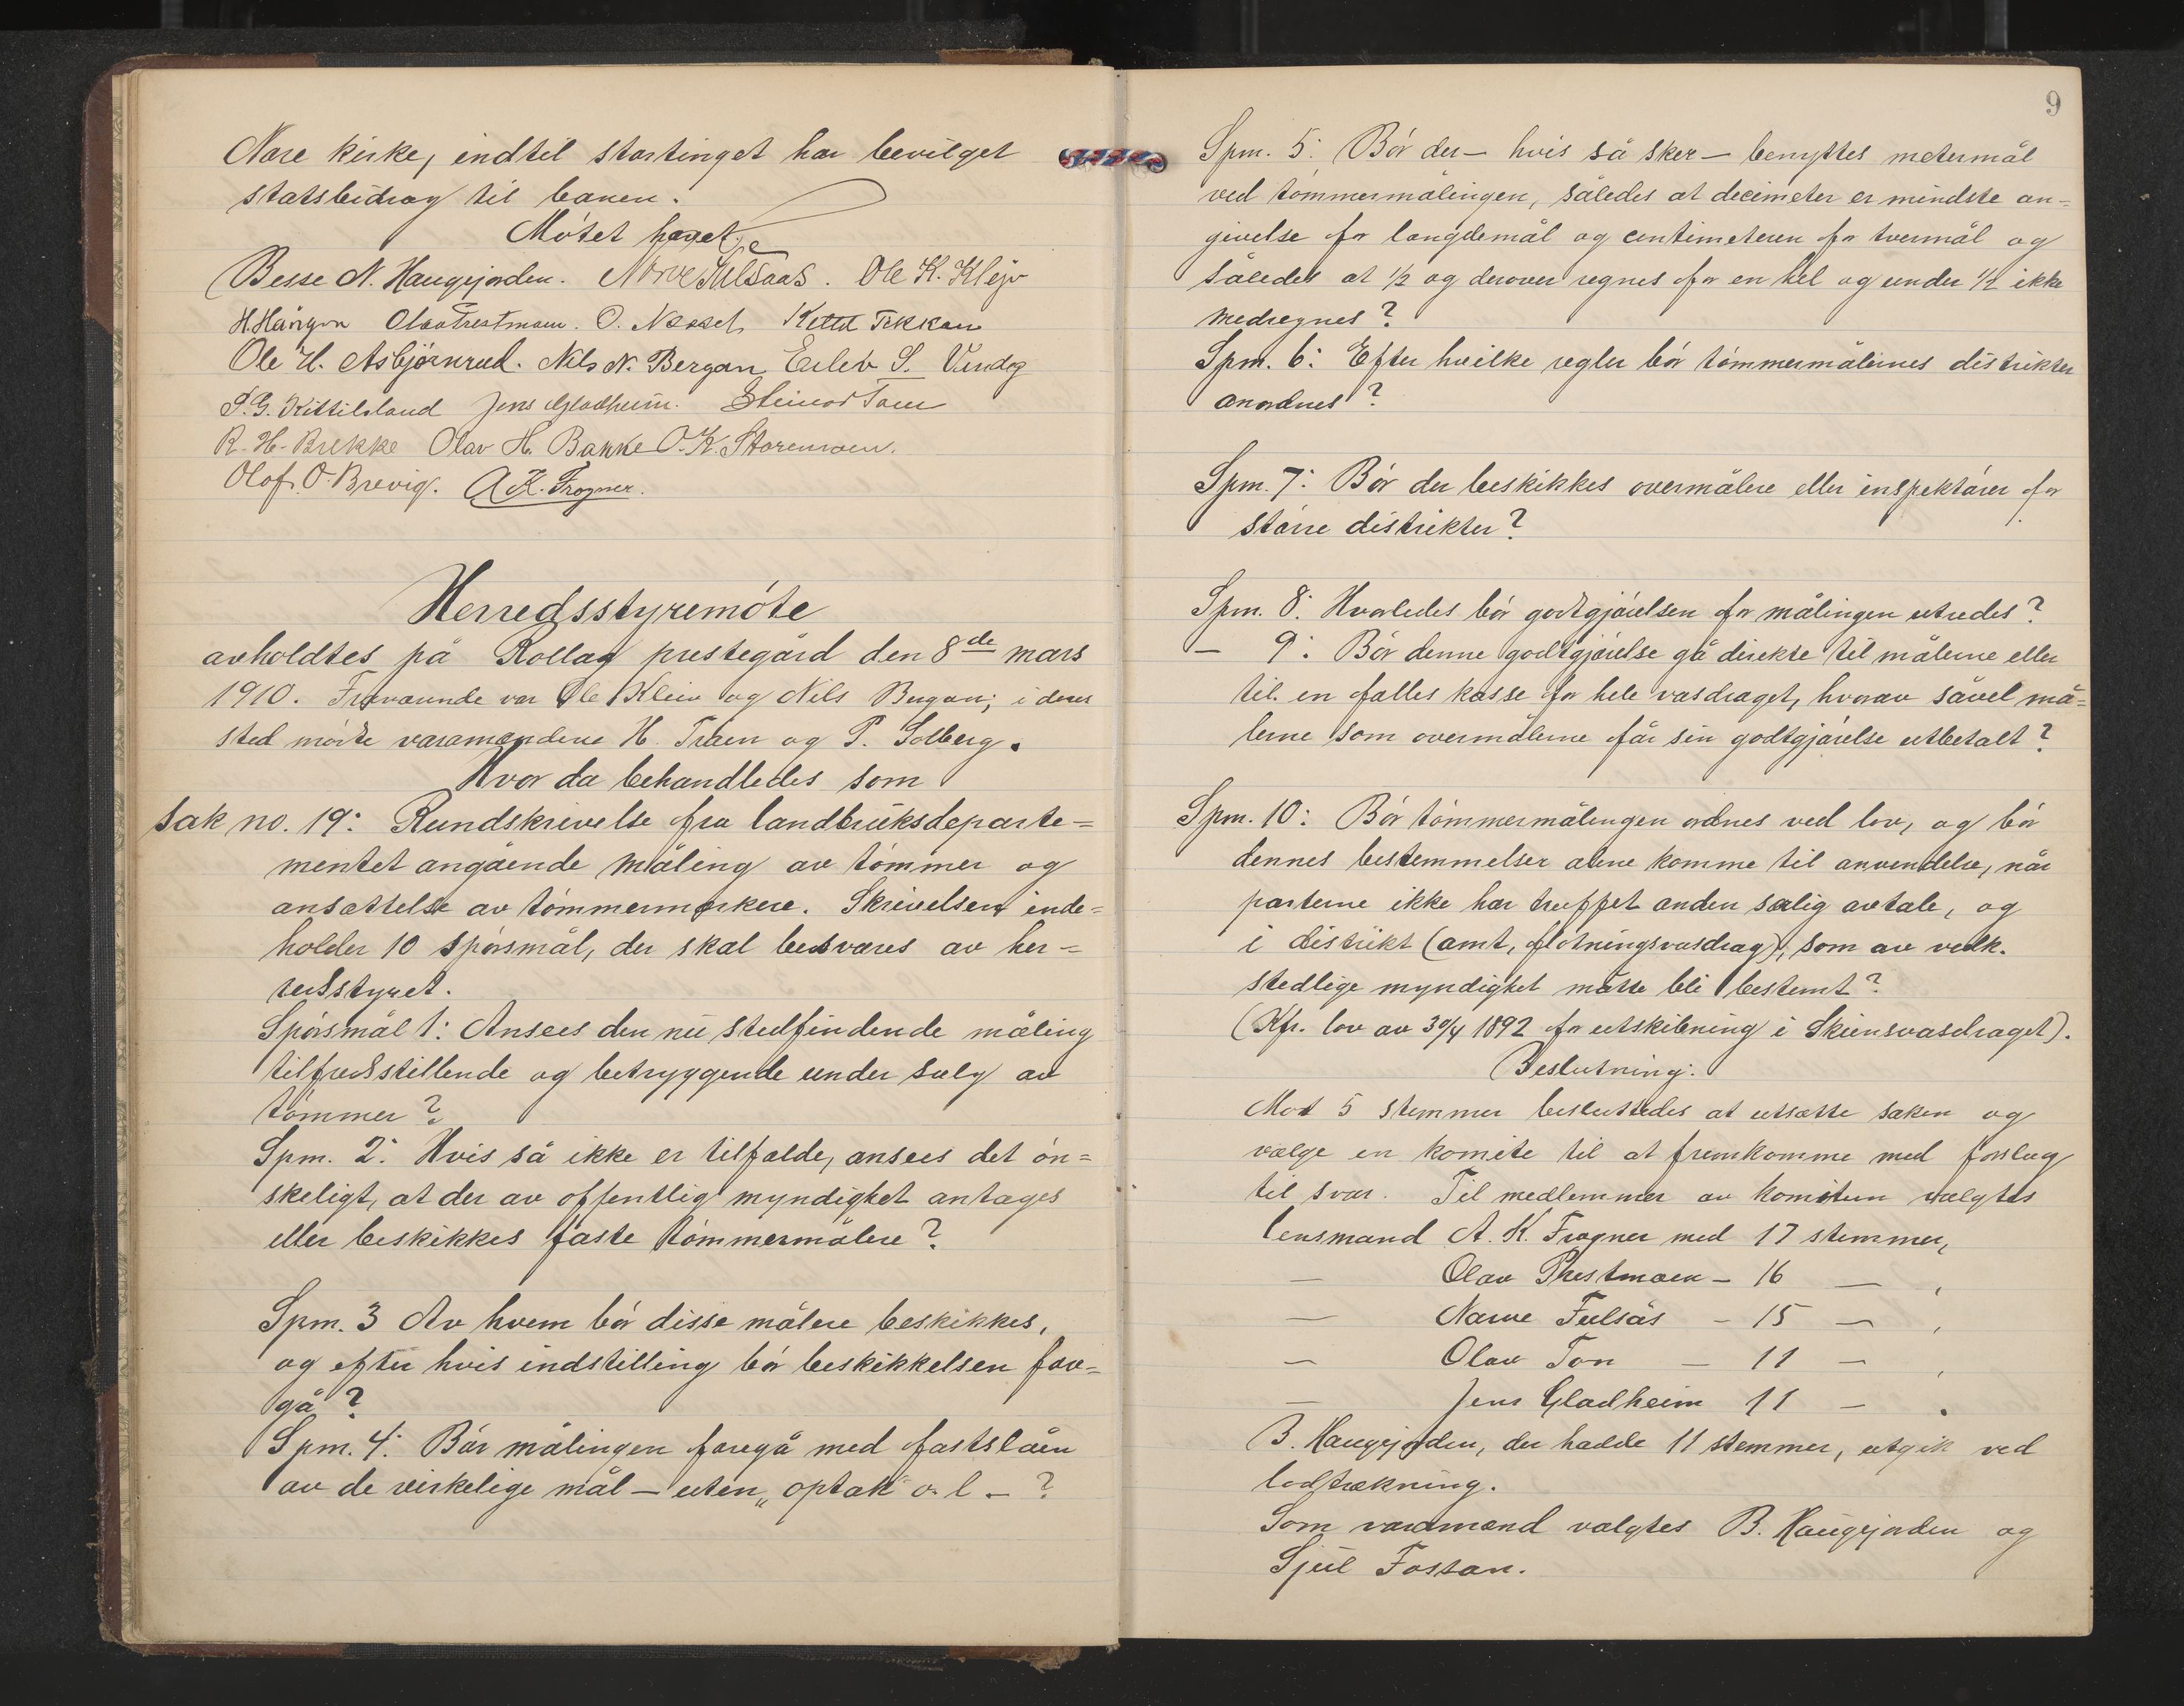 Nore kirke, indtil stortinget har bevilget
statsbidrag til banen.
Møtet hævet.
Besse N. Haugejorden. Narve Fulsaas. Ole K. Kleiv
H. Olav Prestmoen. O. Kittil
Ole H. Asbjørnrud. Nils N. Bergan Eilev S.
P. G. Kittilsland Jens Gladheim. Steinar Toen
R. H. Brekke Olav H. Bakke O. K. Storemoen.
Olaf O. Brevig. A. K. Frogner.
Herredsstyremøte
avholdtes på Rollag prestegård den 8de mars
1910. Fraværende var Ole Kleiv og Nils Bergan; i deres
sted møtte varamændene H. Traen og P. Solberg.
Hvor da behandledes som
sak no. 19: Rundskrivelse fra landbruksdeparte=
mentet angående måling av tømmer og
ansættelse av tømmermerkere. Skrivelsen inde=
holder 10 spørsmål, der skal besvares av her=
redsstyret.
Spørsmål 1: Ansees den nu stedfindende måling
tilfredsstillende og betryggende under salg av
tømmer?
Spm. 2: Hvis så ikke er tilfælde, ansees det øn=
skeligt, at der av offentlig myndighet antages
eller beskikkes faste tømmermålere?
Spm. 3 Av hvem bør disse målere beskikkes,
og efter hvis indstilling bør beskikkelsen fore=
gå?
Spm. 4: Bør målingen foregå med fastslåen
av de virkelige mål — uten „optak" o. l — ?
9
Spm. 5: Bør der — hvis så sker — benyttes metermål
ved tømmermålingen, således at decimeter er mindste an=
givelse for længdemål og centimeteren for tvermål og
således at 1/2 og derover regnes for en hel og under 1/2 ikke
medregnes?
Spm. 6: Efter hvilke regler bør tømmermålernes distrikter
anordnes?
Spm. 7: Bør der beskikkes overmålere eller inspektører for
større distrikter?
Spm. 8: Hvorledes bør godtgjørelsen for målingen utredes?
— 9: Bør denne godtgjørelse gå direkte til målerne eller
til en fælles kasse for hele vasdraget, hvorav såvel må=
lerne som overmålerne får sin godtgjørelse utbetalt?
Spm. 10: Bør tømmermålingen ordnes ved lov, og bør
dennes bestemmelser alene komme til anvendelse, når
parterne ikke har truffet anden særlig avtale, og
i distrikt (amt, fløtningsvasdrag), som av vedk.
stedlige myndighet måtte bli bestemt?
(Kfr. lov av 30/4 1892 for utskibning i Skiensvasdraget).
Beslutning:
Mot 5 stemmer besluttedes at utsætte saken og
vælge en komite til at fremkomme med forslag
til svar. Til medlemmer av komiteen valgtes
lensmand A. K. Frogner med 17 stemmer,
— Olav Prestmoen — 16 — ,
— Narve Fulsås — 15 — ,
— Olav Ton — 11 — ,
— Jens Gladheim 11 — .
B. Haugejorden, der hadde 11 stemmer, utgik ved
lodtrækning.
Som varamænd valgtes B. Haugejorden og
Sjul Fossan.